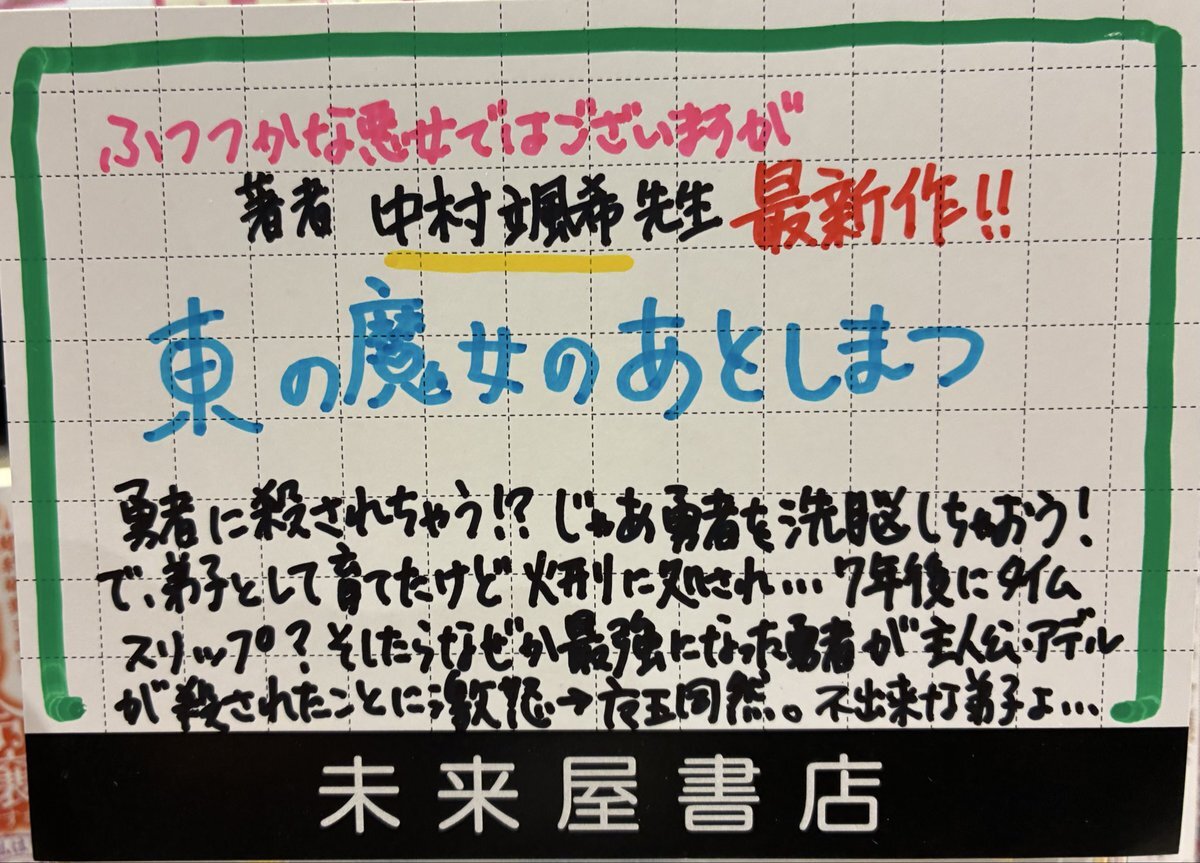 ふつつかな悪女ではございますが
著者 中村颯希先生 最新作!!
東の魔女のあとしまつ
勇者に殺されちゃう!? じゃあ勇者を洗脳しちゃおう!
で、弟子として育てたけど火刑に処され…7年後にタイム
スリップ?そしたらなぜか最強になった勇者が主人公・アデル
が殺されたことに激怒→方五同然。不出来な弟子よ…
未来屋書店